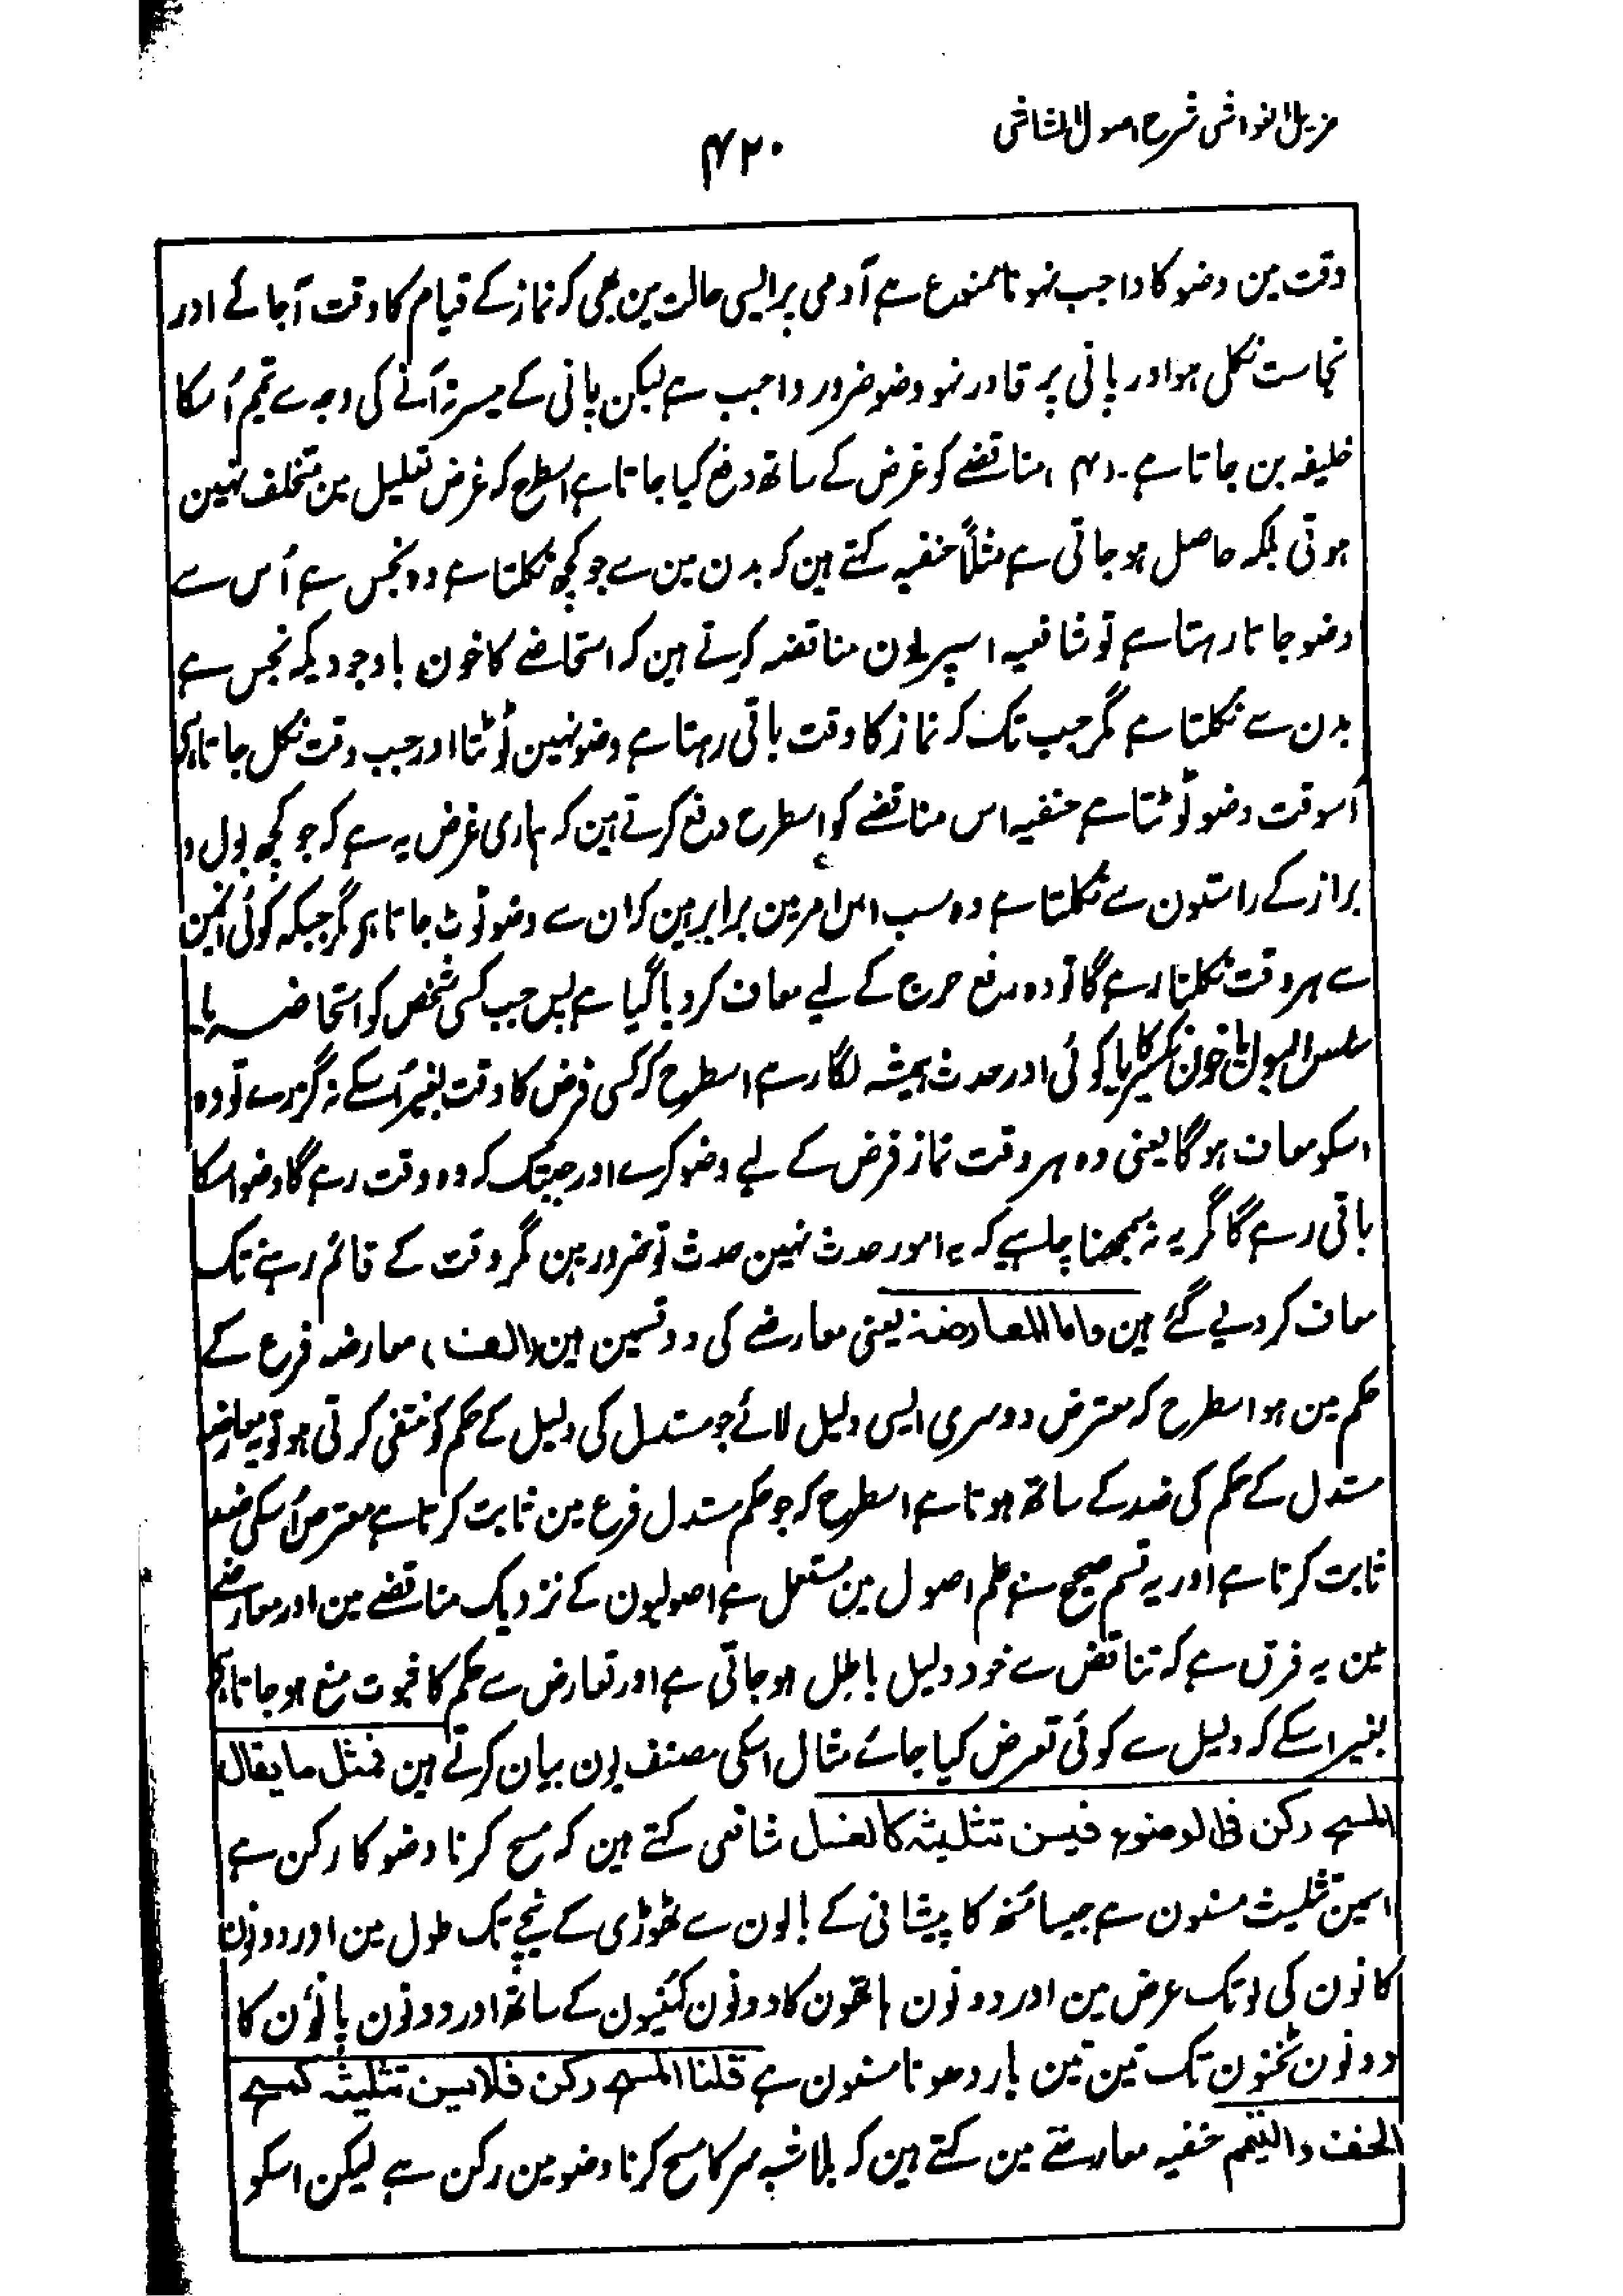 مزیل الغواشی شرح اصول الشاشی
۴۲۰
وقت مین وضو کا واجب نہونا ممنوع ہے آدمی پر ایسی حالت مین بھی کہ نماز کے قیام کا وقت آجائے اور
نجاست نکلی ہو اور پانی پر قادر نہو وضو ضرور واجب ہے لیکن پانی کے میسر نہ آنے کی وجہ سے تیمم اُسکا
خلیفہ بن جاتا ہے۔ (۴) مناقضے کو غرض کے ساتھ دفع کیا جاتا ہے اسطرح کہ غرض تعلیل مین متخلف نہین
ہوتی بلکہ حاصل ہو جاتی ہے مثلاً حنفیہ کہتے ہین کہ بدن مین سے جو کچھ نکلتا ہے وہ نجس ہے اُس سے
وضو جاتا رہتا ہے تو شافعیہ اسپر یون مناقضہ کرتے ہین کہ استحاضے کا خون باوجودیکہ نجس ہے
بدن سے نکلتا ہے مگر جب تک کہ نماز کا وقت باقی رہتا ہے وضو نہین ٹوٹتا اور جب وقت نکل جاتا ہے
اُسوقت وضو ٹوٹتا ہے حنفیہ اس مناقضے کو اسطرح دفع کرتے ہین کہ ہماری غرض یہ ہے کہ جو کچھ بول و
براز کے راستون سے نکلتا ہے وہ سب اس امر مین برابر ہین کہ ان سے وضو ٹوٹ جاتا ہر مگر جبکہ کوئی انمین
سے ہر وقت نکلتا رہے گا تو وہ دفع حرج کے لیے معاف کر دیا گیا ہے پس جب کسی شخص کو استحاضہ یا
سلس البول یا خون نکسیر کا یا کوئی اور حدث ہمیشہ لگا رہے اسطرح کہ کسی فرض کا وقت بغیر اُسکے نہ گزرے تو وہ
اسکو معاف ہوگا یعنی وہ ہر وقت نماز فرض کے لیے وضو کرے اور جبتک کہ وہ وقت رہے گا وضو اسکا
باقی رہے گا مگر یہ نہ سمجھنا چاہیے کہ یہ امور حدث نہین حدث تو ضرور ہین مگر وقت کے قائم رہنے تک
معاف کر دیے گئے ہین واما المعارضۃ یعنی معارضے کی دو قسمین ہین (الف) معارضہ فرع کے
حکم مین ہو اسطرح کہ معترض دوسری ایسی دلیل لائے جو مستدل کی دلیل کے حکم کو منتفی کرتی ہو تو یہ معارضہ
مستدل کے حکم کی ضد کے ساتھ ہوتا ہے اسطرح کہ جو حکم مستدل فرع مین ثابت کرتا ہے معترض اُسکی ضد
ثابت کرتا ہے اور یہ قسم صحیح ہے علم اصول مین مستعمل ہے اصولیون کے نزدیک مناقضے مین اور معارضے
مین یہ فرق ہے کہ تناقض سے خود دلیل باطل ہو جاتی ہے اور تعارض سے حکم کا ثبوت منع ہو جاتا ہے
بغیر اسکے کہ دلیل سے کوئی تعرض کیا جائے مثال اسکی مصنف یون بیان کرتے ہین فمثل ما یقال
المسح رکن فی الوضوء فیسن تثلیثہ کالغسل شافعی کہتے ہین کہ مسح کرنا وضو کا رکن ہے
اسمین تثلیث مسنون ہے جیسا مُنھ کا پیشانی کے بالون سے ٹھوڑی کے نیچے تک طول مین اور دونون
کانون کی لو تک عرض مین اور دونون ہاتھون کا دونون کہنیون کے ساتھ اور دونون پانوٴن کا
دونون ٹخنون تک تین تین بار دھونا مسنون ہے قلنا المسح رکن فلا یسن تثلیثہ کمسح
الخف والتیمم حنفیہ معارضے مین کہتے ہین کہ بلا شبہ سر کا مسح کرنا وضو مین رکن ہے لیکن اسکو